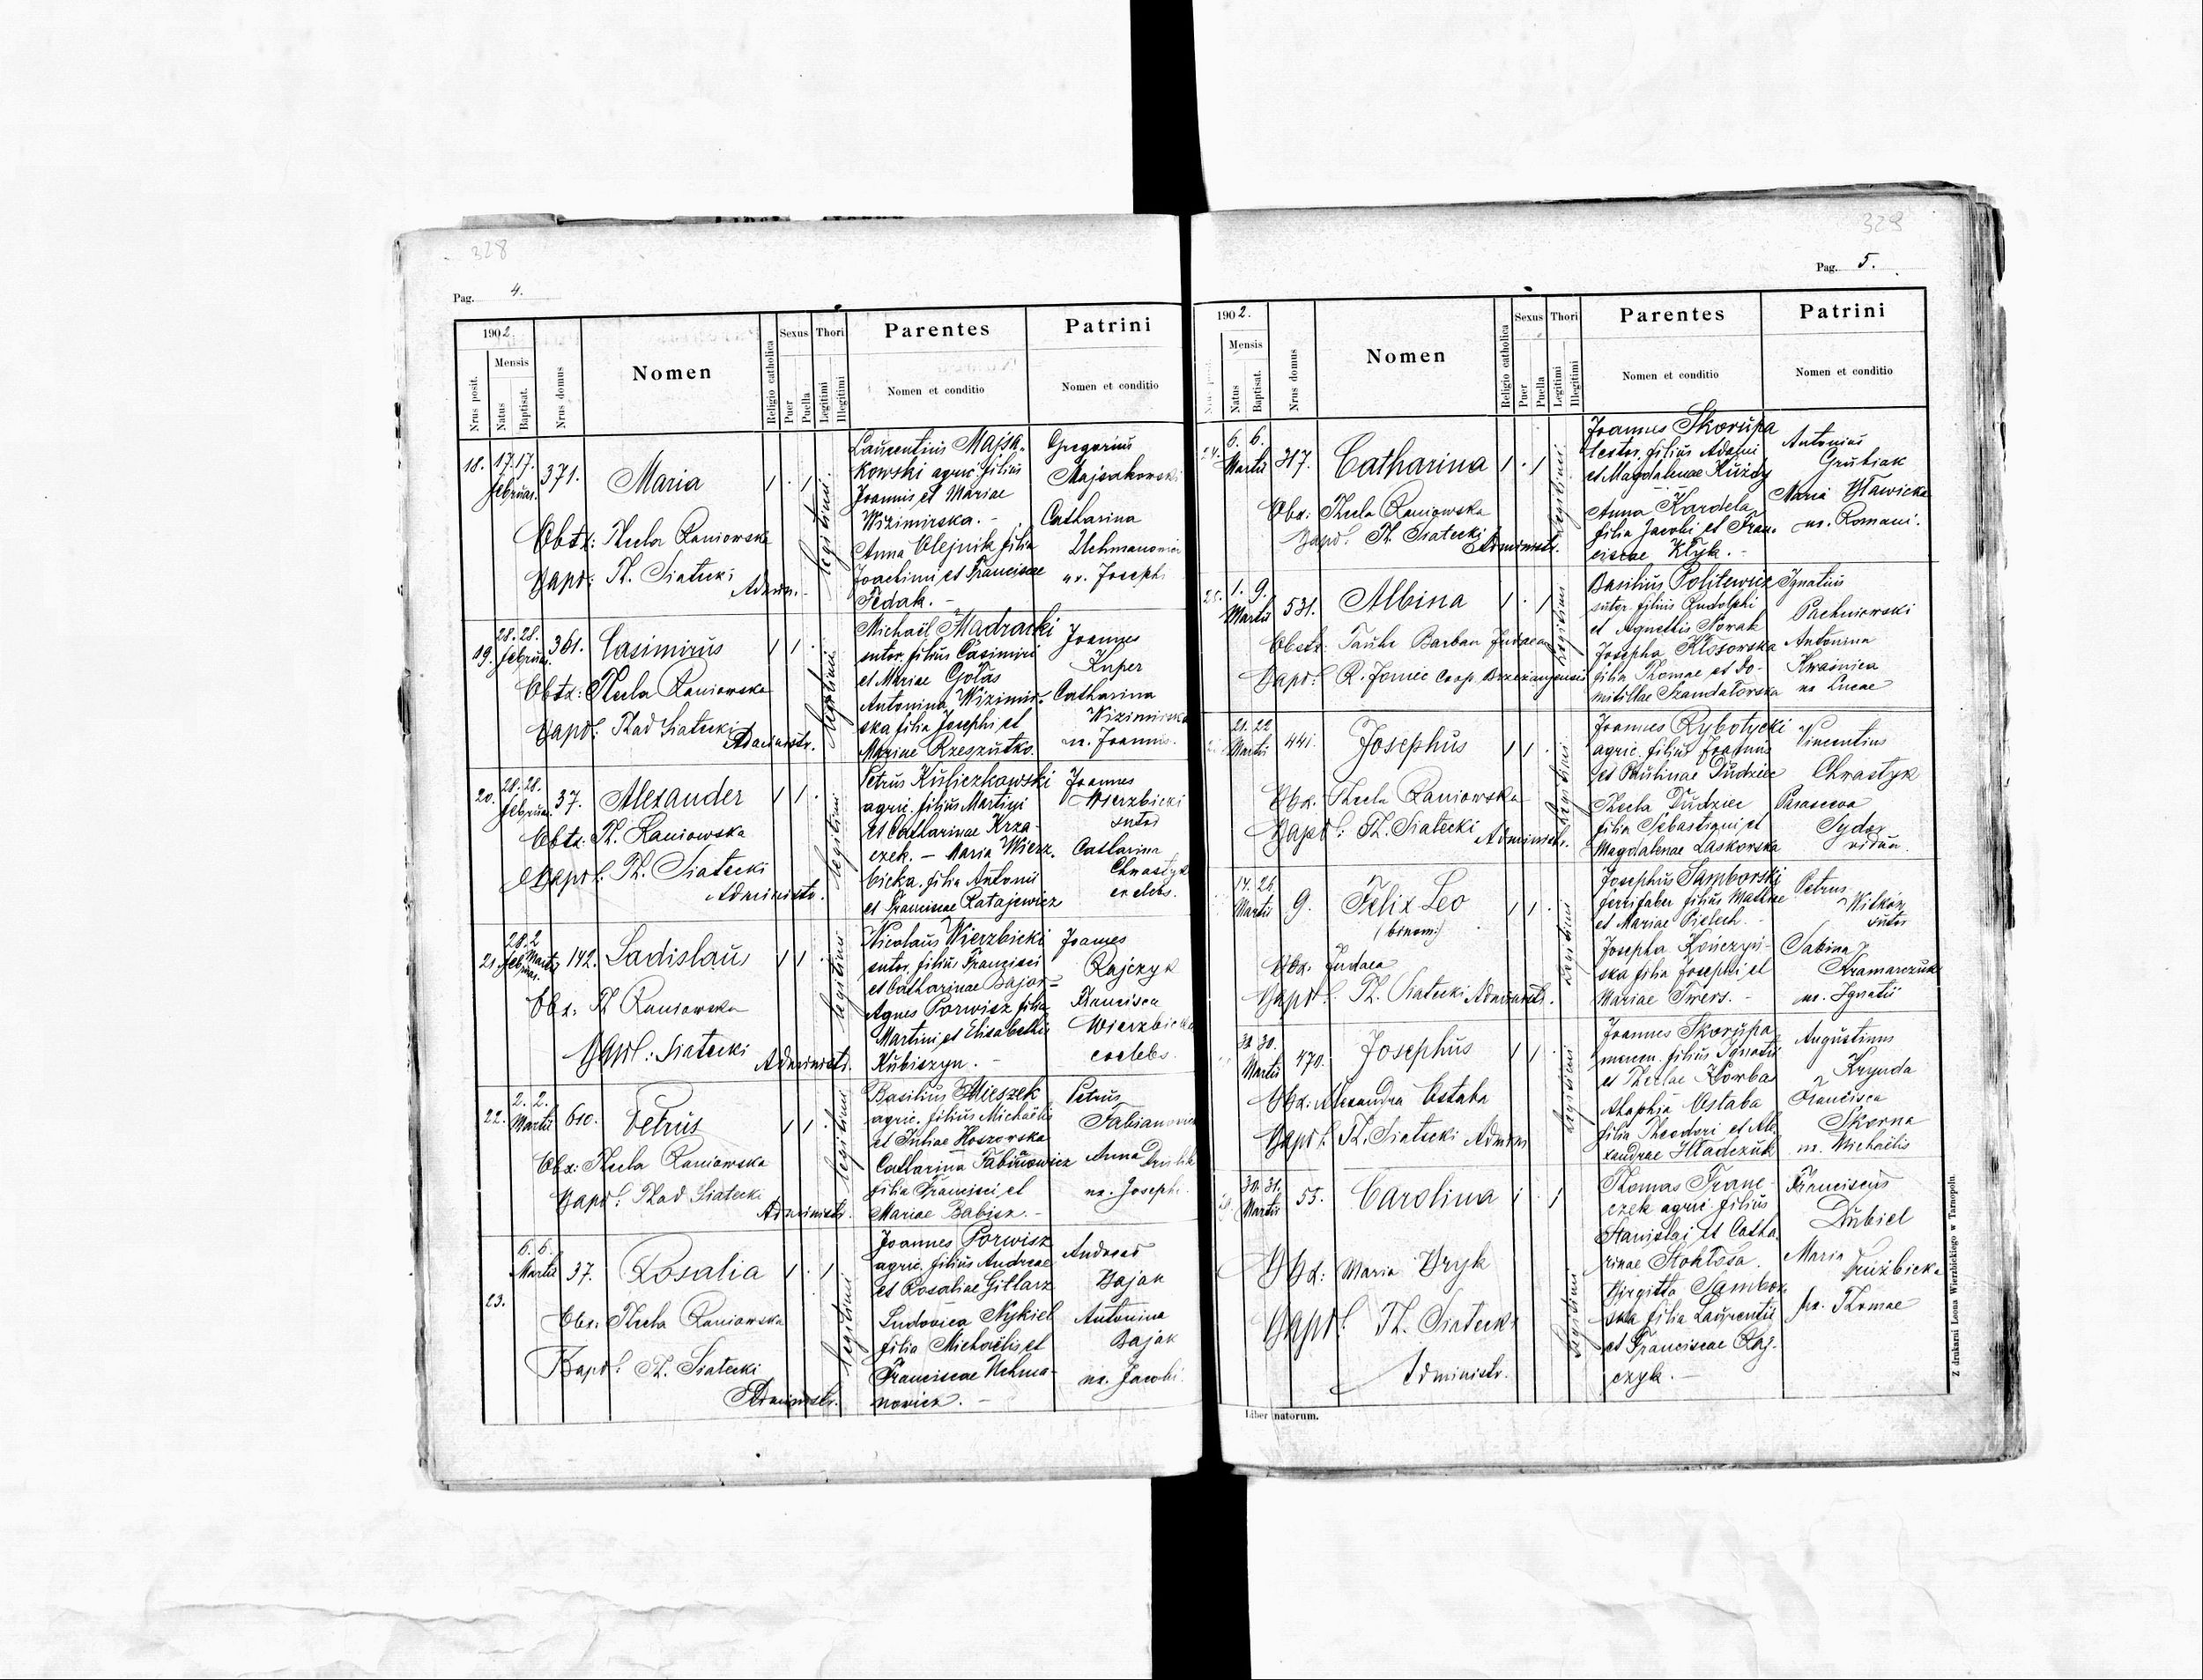 328
Pag. 4.
1902.
Nrus posit.
Mensis
Natus
Baptisat.
Nrus domus
Nomen
Religio catholica
Sexus
Puer
Puella
Thori
Legitimi
Illegitimi
Parentes
Nomen et conditio
Patrini
Nomen et conditio
18. 17. 17. Februar. 371. Maria
Legitimi
Obstx: Thecla Raniowska
Bapt: Th. Siatecki
Admin.
Laurentius Majsa-
kowski agric. filius
Joannis et Mariae
Wizimirska. -
Anna Olejnik filia
Joachimi et Franciscae
Fedak. -
Gregorius
Majsakowski
Catharina
Uchmanowicz
ux. Josephi
19. 28. 28. Februar. 361. Casimirus
Legitimi
Obstx: Thecla Raniowska
Bapt: Thad Siatecki
Administr.
Michaël Madracki
sutor, filius Casimiri
et Mariae Gołas
Antonina Wizimir-
ska filia Josephi et
Mariae Rzeszutko.
Joannes
Kuper
Catharina
Wizimirska
ux. Joannis.
20. 28. 28. Februar. 37. Alexander
Legitimi
Obstx: Th. Raniowska
Bapt. Th. Siatecki
Administr.
Petrus Kuliczkowski
agric. filius Martini
et Catharinae Krza-
czek. - Maria Wierz-
bicka. filia Antonii
et Franciscae Ratajewicz
Joannes
Wierzbicki
sutor
Catharina
Chrastyk
coelebs.
21. 28. Februar. 2 Martii 142. Ladislaus
Legitimi
Obx: Th Raniowska
Bapt: Siatecki
Administr.
Nicolaus Wierzbicki
sutor, filius Francisci
et Catharinae Bajor=
Agnes Porwisz filia
Martini et Elisabethae
Kubiszyn. -
Joannes
Rajczyk
Francisca
Wierzbicka
coelebs.
22. 2. 2. Martii 610. Petrus
Legitimi
Obx: Thecla Raniowska
Bapt: Thad Siatecki
Administr.
Basilius Mieszek
agric. filius Michaëlis
et Juliae Hoszowska
Catharina Fabianowicz
filia Francisci et
Mariae Babisz. -
Petrus
Fabianowicz
Anna
ux. Josephi.
23. 6. 6. Martii 37. Rosalia
Legitimi
Obx: Thecla Raniowska
Bapt: Th. Siatecki
Administr.
Joannes Porwisz
agric. filius Andreae
et Rosaliae Gitlarz
Ludovica Nykiel
filia Michaëlis et
Franciscae Uchma-
nowicz. -
Andreas
Bajak
Antonina
Bajak
ux. Jacobi.
329
Pag. 5.
1902.
Mensis
Natus
Baptisat.
Nrus domus
Nomen
Religio catholica
Sexus
Puer
Puella
Thori
Legitimi
Illegitimi
Parentes
Nomen et conditio
Patrini
Nomen et conditio
24. 6. 6. Martii 317. Catharina
Legitimi
Obx: Thecla Raniowska
Bapt. Th. Siatecki Administr.
Joannes Skorupa
textor, filius Adami
et Magdalenae Kuzdy
Anna Kardela
filia Jacobi et Fran-
ciscae Kłyk. -
Antonius
Grubiak
Maria Hławicka
ux. Romani.
25. 1. 9. Martii 531. Albina
Legitimi
Obstx. Taube Barban Judaea
Bapt. R. Joniec Coop. Brzezanyensis
Basilius Politewicz
sutor filius Rudolphi
et Agnethis Nowak
Josepha Kłosowska
filia Thomae et Do-
mitillae Szandałowska
Ignatius
Pachniowski
Antonina
Kwaśnica
ux Lucae
21. 22 Martii 441. Josephus
Legitimi
Obx. Thecla Raniowska
Bapt: Th. Siatecki Administr.
Joannes Rybotycki
agric. filius Joannis
et Paulinae Dudziec
Thecla Dudziec
filia Sebastiani et
Magdalenae Laskowska
Vincentius
Chrastyk
Parascewa
Sydor
vidua.
14. 26. Martii 9. Felix Leo
(binom.)
Legitimi
Obx. Judaea
Bapt. Th. Siatecki Administr.
Josephus Samborski
ferrifaber filius Mathiae
et Mariae Pielech.
Josepha Kończyń-
ska filia Josephi et
Mariae Twers. -
Petrus
Witkoś
sutor
Sabina
Kramarczuk
ux. Ignatii
30. 30. Martii 470. Josephus
Legitimi
Obx: Alexandra Ostaba
Bapt. Th. Siatecki Admin
Joannes Skorupa
mercen. filius Ignatii
et Theclae Worba
Ahaphia Ostaba
filia Theodori et Ale-
xandrae Hładczuk
Augustinus
Krynda
Francisca
Skorna
ux. Michaëlis
30. 31. Martii 55. Carolina
Legitimi
Obx: Maria Dryk
Bapt. Th. Siatecki
Administr.
Thomas Franc-
czek agric. filius
Stanislai et Catha-
rinae Stokłosa.
Birgitta Sambor-
ska filia Laurentii
et Franciscae Raj-
czyk. -
Franciscus
Dubiel
Maria
Druzbicka
ux. Thomae
Liber natorum.
Z drukarni Leona Wierzbickiego w Tarnopolu.